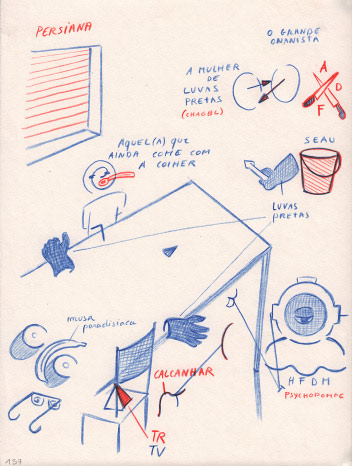 PERSIANA
O GRANDE
ONANISTA
A MULHER
DE
LUVAS
PRETAS
(CHAOBL)
A
D
F
AQUEL(A) QUE
AINDA COME COM
A COLHER
SEAU
LUVAS
PRETAS
musa
paradisíaca
CALCANHAR
HFDM
PSYCHOPOMPE
TR
TV
137